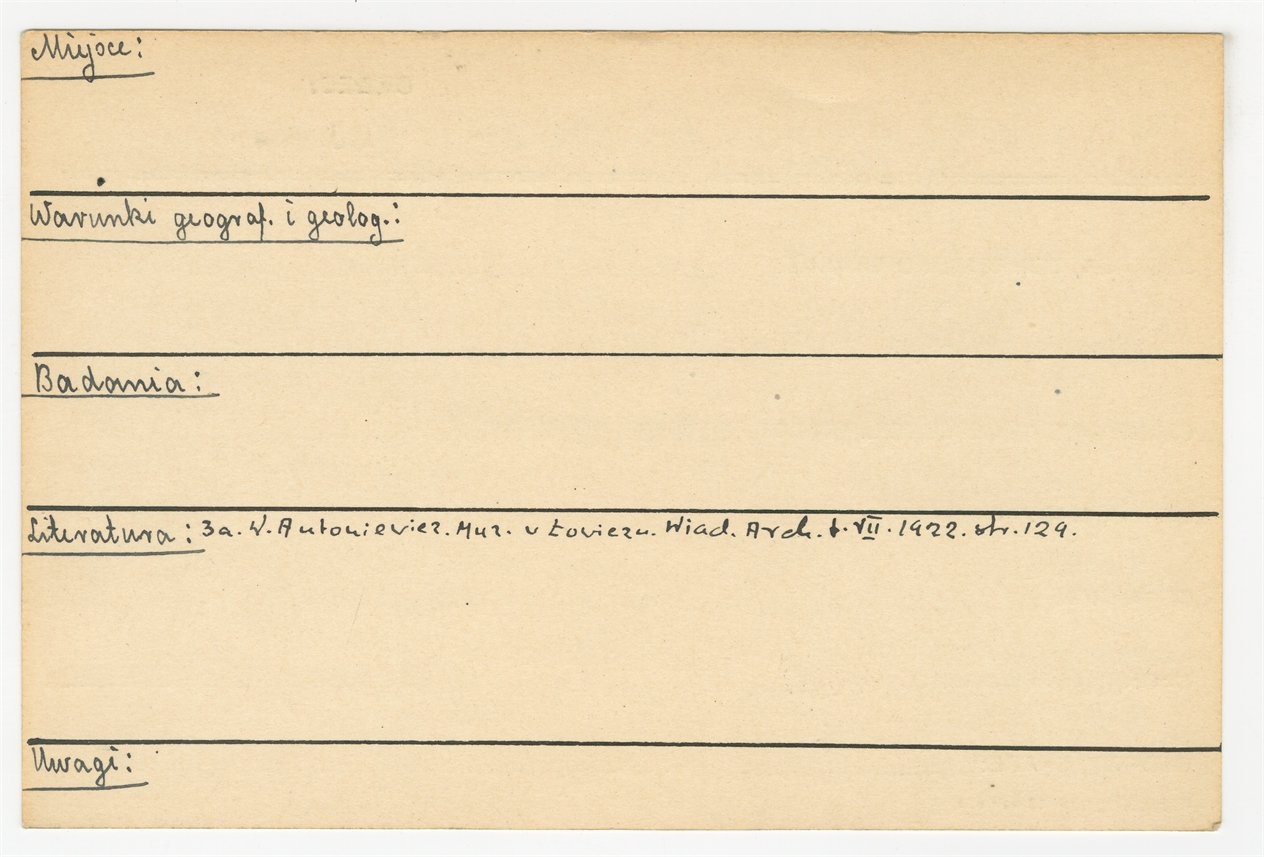 Miejsce:
Warunki geograf. i geolog.:
Badania:
Literatura: 3a. W. Antoniewicz. Muz. w Łowiczu. Wiad. Arch. t. VII. 1922. str. 129.
Uwagi: